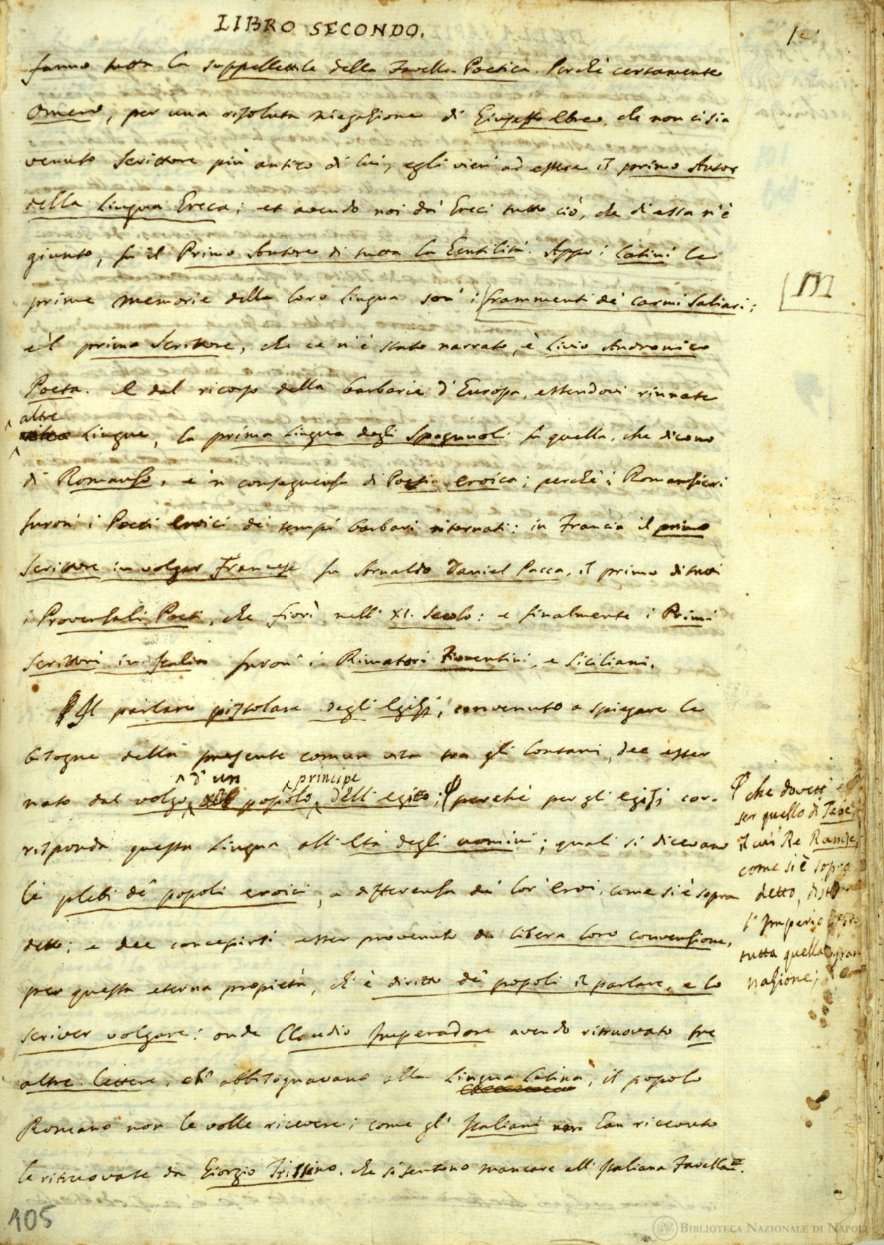 LIBRO SECONDO.
fanno tutta la suppellettile della Favella Poetica. Perchè certamente
Omero, per una risoluta niegazione di Giuseffo Ebreo, che non ci sia
venuto Scrittore più antico di lui, egli vien' ad essere il primo Autor
della Lingua Greca; et avendo noi da' Greci tutto ciò, che di essa n'è
giunto, fu il Primo Autore di tutta la Gentilità. Appo i Latini le
prime memorie della loro lingua son' i frammenti de' carmi Saliari;
e'l primo Scrittore, che ce n'è stato narrato, è Livio Andronico
Poeta. E dal ricorso della barbarie d'Europa, essendovi rinnate
altre
Lingue, la prima Lingua degli Spagnuoli fu quella, che dicono
di Romanzo, e 'n conseguenza di Poesia eroica; perchè i Romanzieri
furon' i Poeti eroici de' tempi barbari ritornati: in Francia il primo
Scrittore in volgar Francese fu Arnaldo Daniel Pacca, il primo di tutti
i Provenzali Poeti, che fiorì nell' XI. secolo: e finalmente i Primi
Scrittori in Italia furon' i Rimatori Fiorentini, e Siciliani.
Il parlare pistolare degli Egizj, convenuto a spiegare le
bisogne della presente comun vita tra gli lontani, dee esser
d' un principe
nato dal volgo popolo dell' Egitto; perchè per gli Egizj cor-
risponda questa Lingua all'Età degli uomini; quali si dicevano
le plebi de' popoli eroici, a differenza de' lor' eroi, come si è sopra
detto; e dee concepirsi esser provenuto da libera loro convenzione,
per questa eterna propietà, ch'è diritto de' popoli il parlare, e lo
scriver volgare: onde Claudio Imperadore avendo ritruovato tre
altre lettere, ch' abbisognavano alla Lingua Latina, il popolo
Romano non le volle ricevere; come gl' Italiani non han ricevuto
le ritruovate da Giorgio Trissino, che si sentono mancare all' Italiana Favella.
che dovett' es-
ser quello di Tebe
il cui Re Ramse,
come si è sopra
detto, distese
l'Imperio sopra
tutta quella gran
nazione;
105
BIBLIOTECA NAZIONALE DI NAPOLI